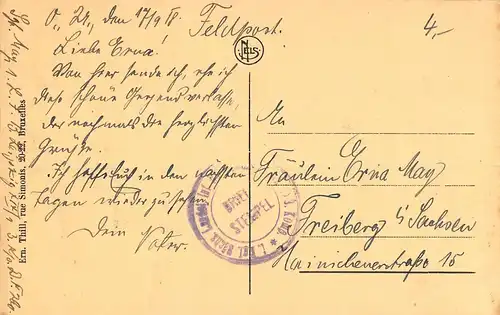 O., 24., den 17/9 18.
Feldpost.
4,-
Liebe Erna!
Von hier sende ich, ehe ich
diese schöne Gegend verlasse,
Dir nochmals die herzlichsten
Grüsse.
Ich hoffe Euch in den nächsten
Tagen wieder zu sehen.
Dein Vater.
NELS
An
Fräulein Erna May
Freiberg i/Sachsen
Hainichenerstraße 15
Ern. Thill, rue Simonis, 20-22, Bruxelles